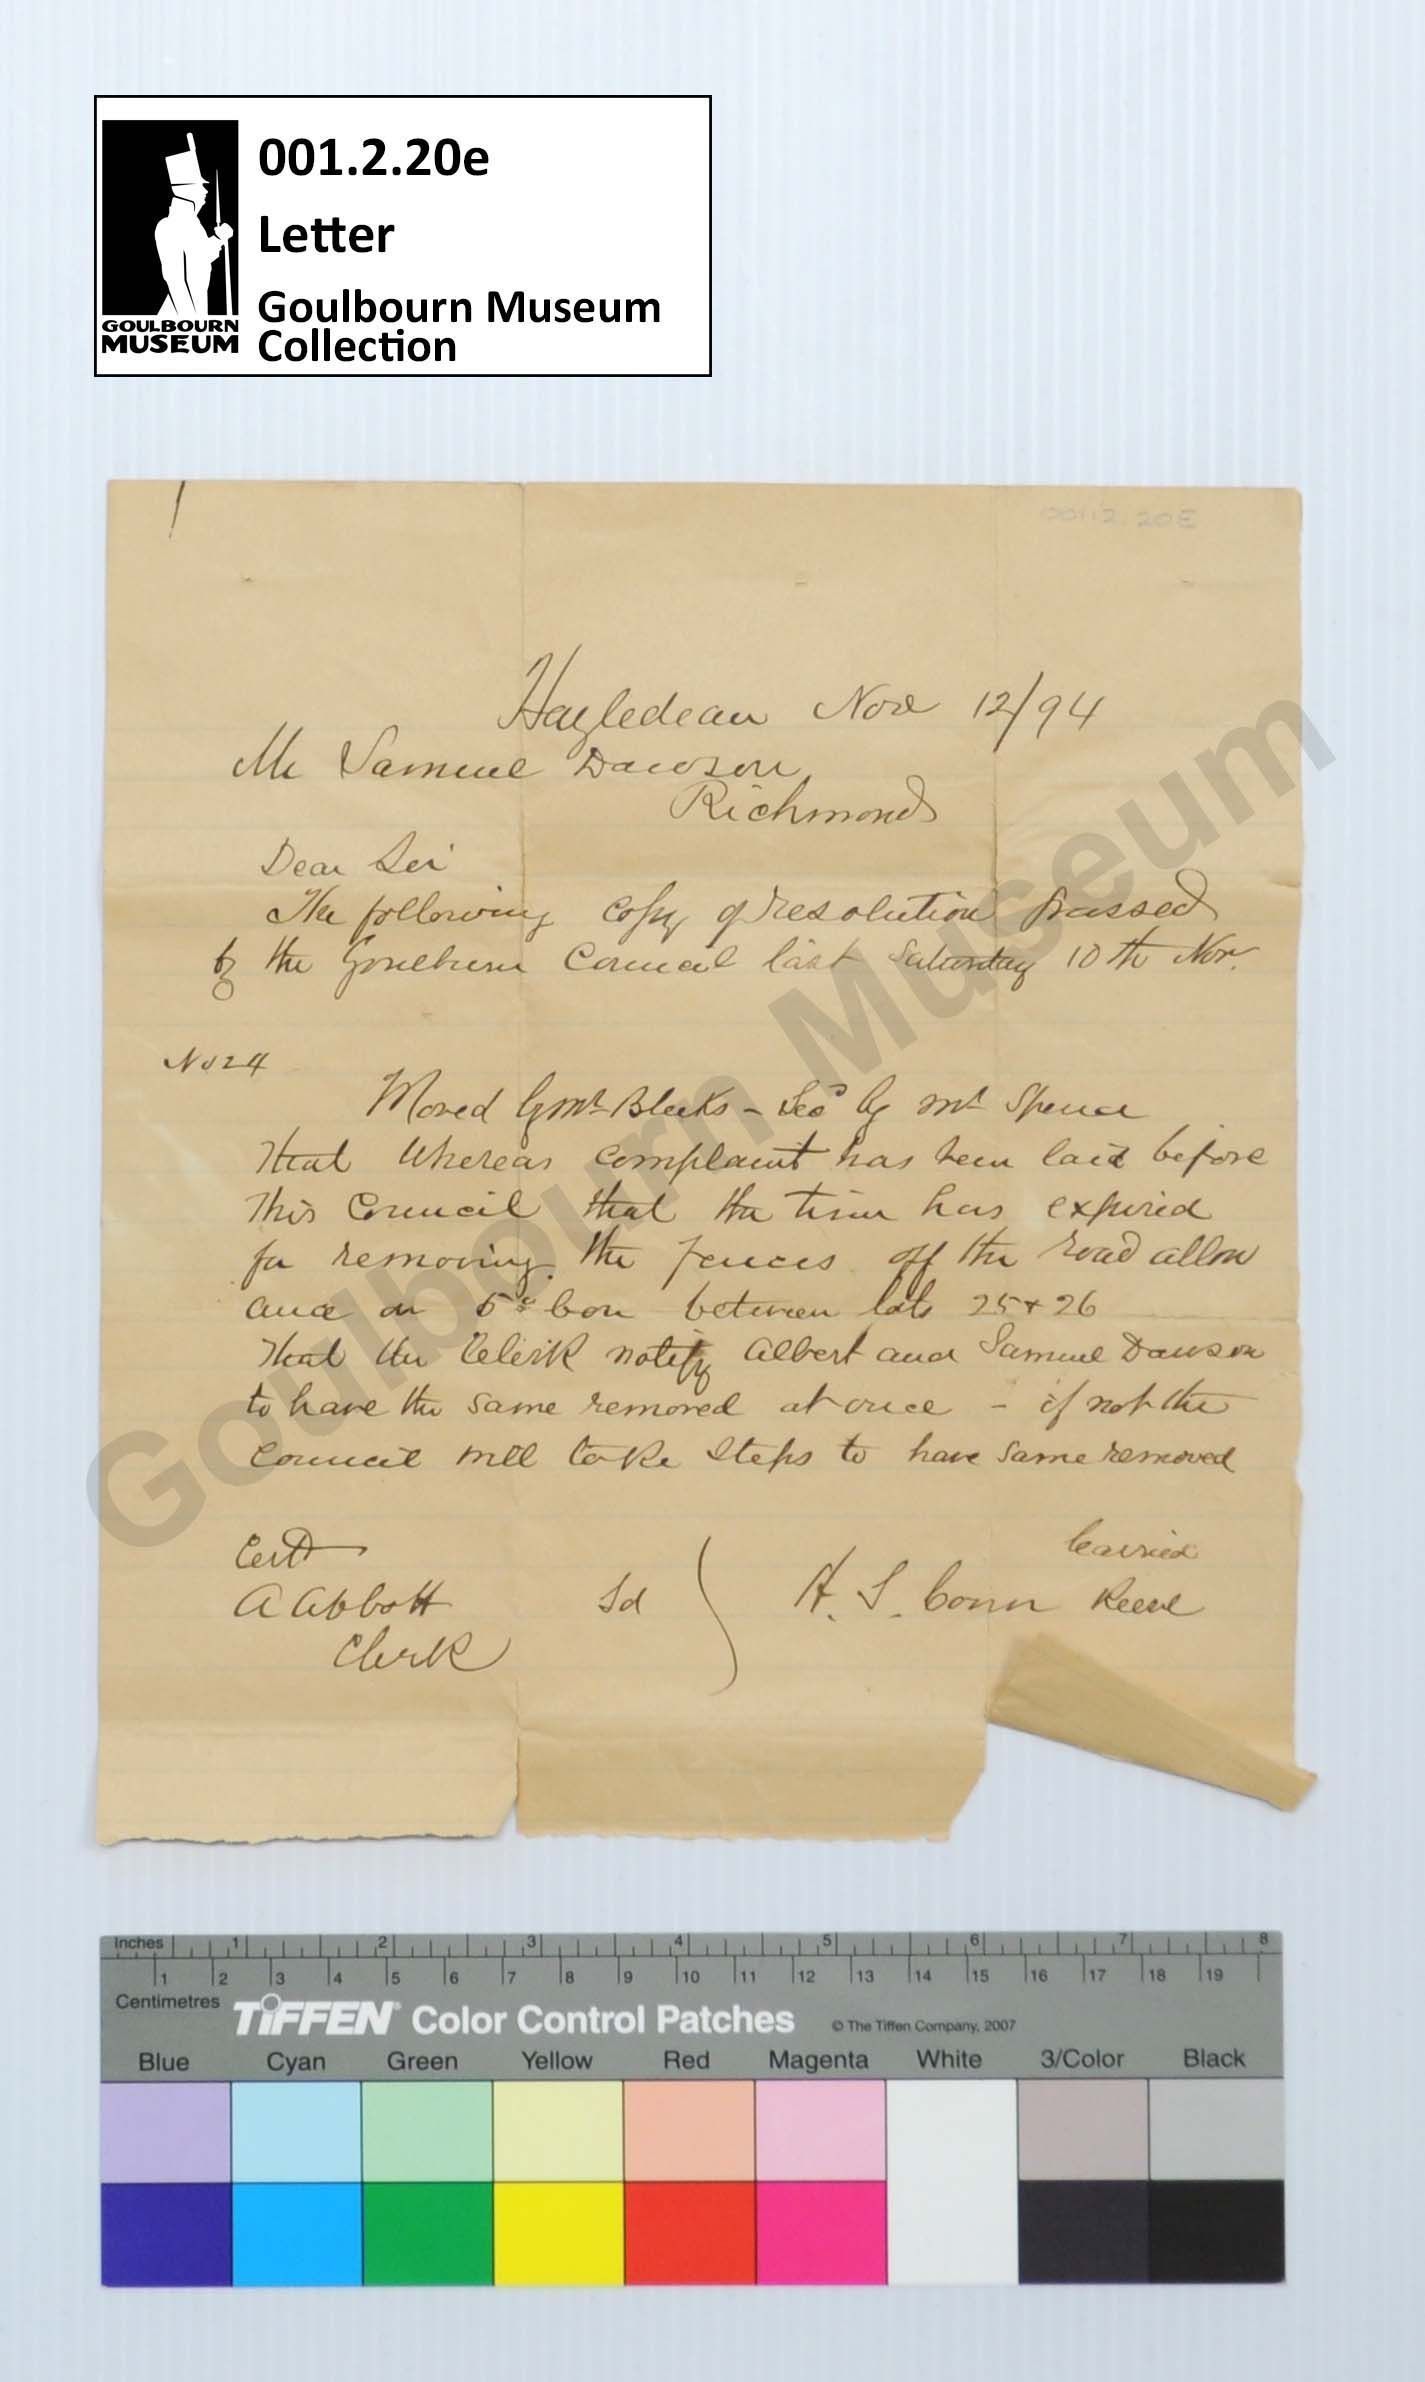 001.2.20e
Letter
Goulbourn Museum
Collection
GOULBOURN
MUSEUM
001.2.20E
Hazledean Nov 12/94
Mr Samuel Dawson
Richmond
Dear Sir
The following copy of resolution passed
by the Goulburn Council last Saturday 10th Nov.
No 24
Moved by Mr Bleeks - Sec^d by Mr Spence
that whereas complaint has been laid before
this Council that the time has expired
for removing the fences off the road allow
ance on 5^th Con between lots 25 + 26
That the Clerk notify Albert and Samuel Dawson
to have the same removed at once - if not the
Council will take steps to have same removed
Carried
Cert
A Abbott Sd ) H. S. Conn Reeve
Clerk
Goulbourn Museum
Inches 1 2 3 4 5 6 7 8
1 2 3 4 5 6 7 8 9 10 11 12 13 14 15 16 17 18 19
Centimetres
TIFFEN® Color Control Patches © The Tiffen Company, 2007
Blue Cyan Green Yellow Red Magenta White 3/Color Black